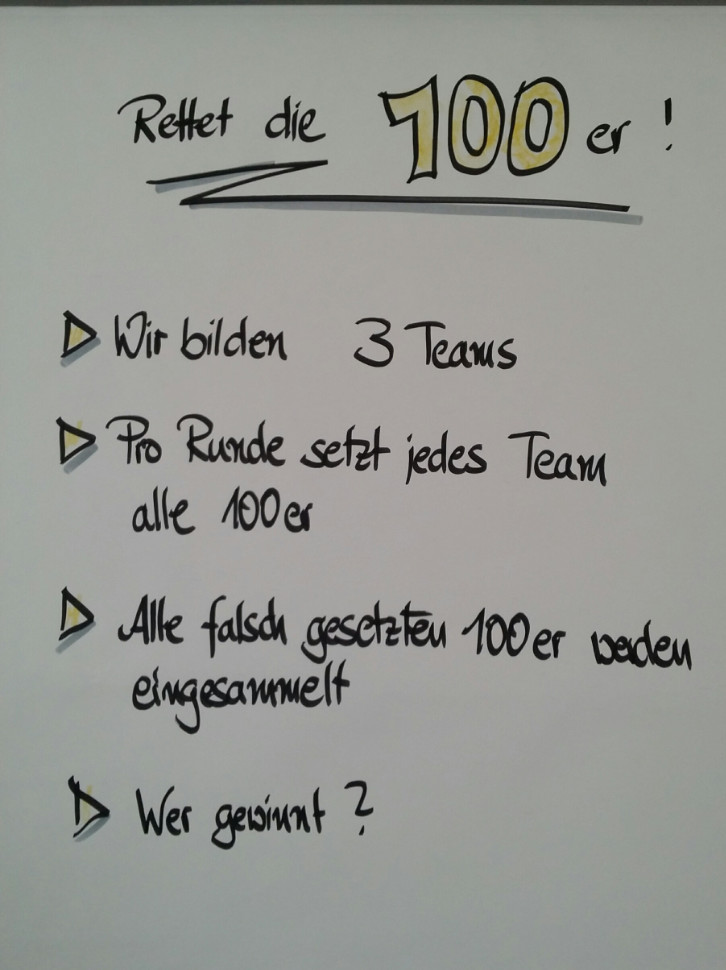 Rettet die 100er!
Wir bilden 3 Teams
Pro Runde setzt jedes Team
alle 100er
Alle falsch gesetzten 100er werden
eingesammelt
Wer gewinnt?